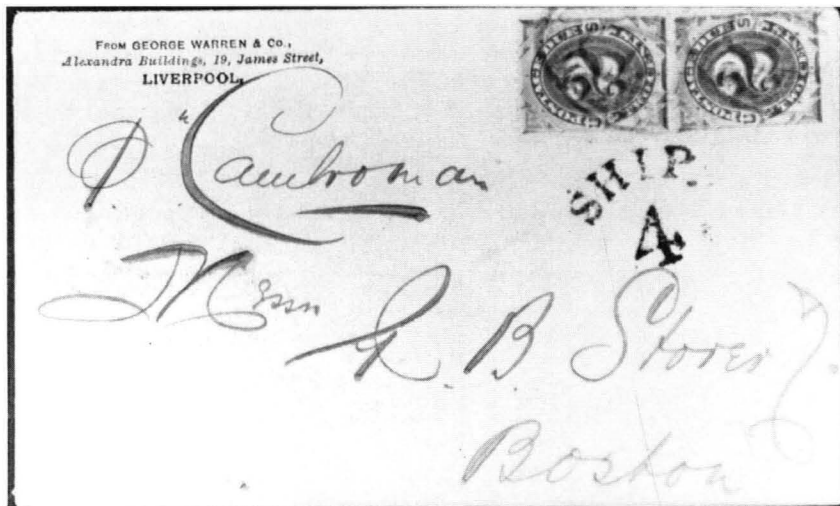 FROM GEORGE WARREN & Co.,
Alexandra Buildings, 19, James Street,
LIVERPOOL.
SHIP
4
p. "Cambroman
Messrs
R. B. Storer
Boston